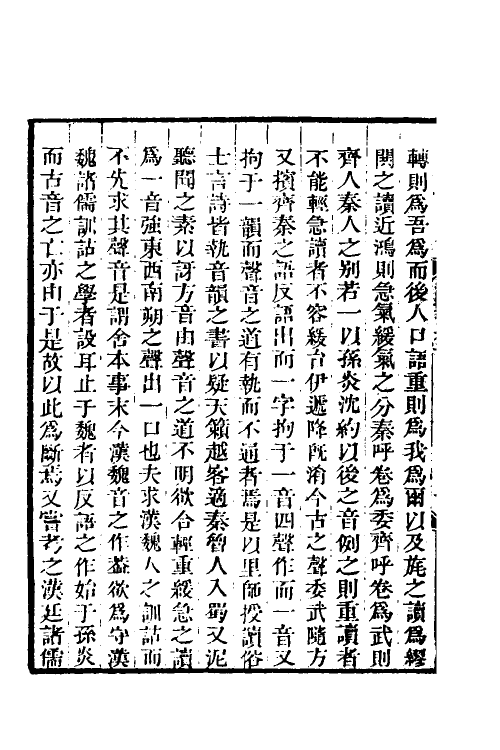 轉則爲吾爲而後人口語重則爲我爲爾以及旄之讀爲繆
閧之讀近鴻則急氣緩氣之分秦呼卷爲委齊呼卷爲武則
齊人秦人之别若一以孫炎沈約以後之音例之則重讀者
不能輕急讀者不容緩台伊遞降旣淆今古之聲委武隨方
又擯齊秦之語反語出而一字拘于一音四聲作而一音又
拘于一韻而聲音之道有執而不通者焉是以里師授讀俗
士言詩皆執音韻之書以疑天籟越客適秦魯人入蜀又泥
聽聞之素以訝方音由聲音之道不明欲合輕重緩急之讀
爲一音強東西南朔之聲出一口也夫求漢魏人之訓詁而
不先求其聲音是謂舍本事末今漢魏音之作蓋欲爲守漢
魏諸儒訓詁之學者設耳止于魏者以反語之作始于孫炎
而古音之亡亦由于是故以此爲斷焉又嘗考之漢廷諸儒